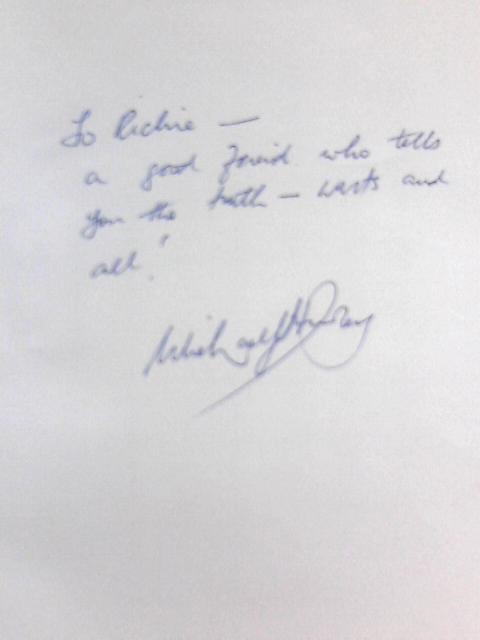 To Richie —
a good friend who tells
you the truth — warts and
all!
Michael